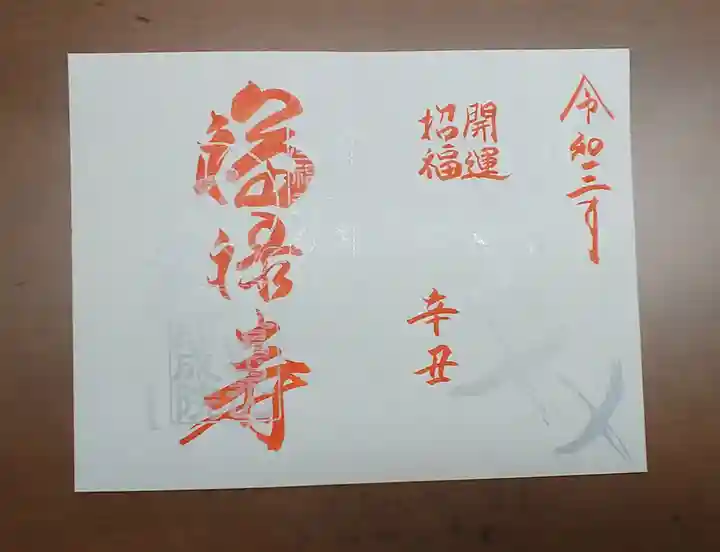 令和三年
開運
招福
辛丑
福禄寿
成院